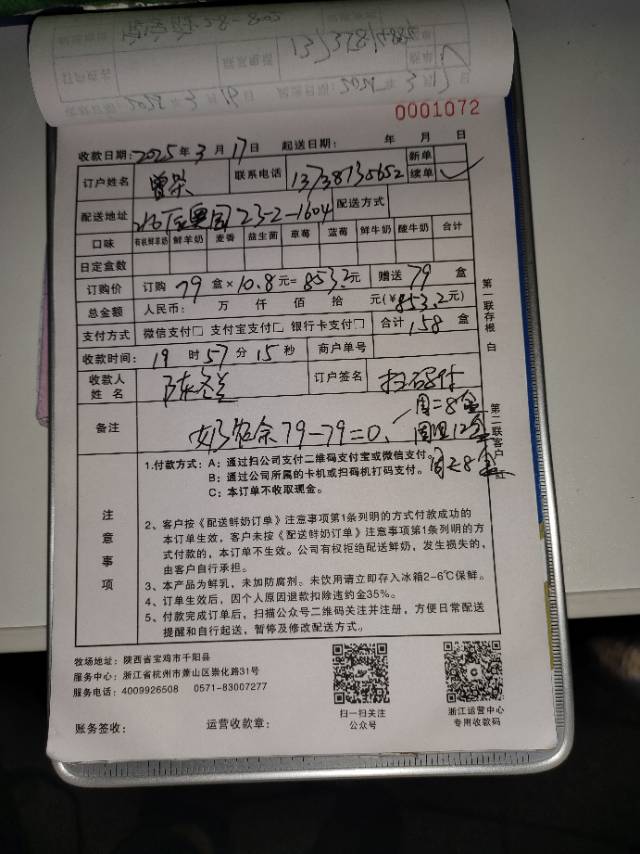 0001072
收款日期：2025年3月17日 起送日期： 年 月 日
订户姓名 曾荣 联系电话 13738135652 新单
续单 ✓
配送地址 23-2-1604 配送方式
口味 有机鲜羊奶 鲜羊奶 麦香 益生菌 草莓 蓝莓 鲜牛奶 酸牛奶 合计
日定盒数
订购价 订购 79 盒×10.8元=853.2元 赠送 79 盒
总金额 人民币： 万 仟 佰 拾 元(¥853.2元)
支付方式 微信支付□ 支付宝支付□ 银行卡支付□ 合计 158 盒
收款时间：19 时 57 分 15 秒 商户单号
收款人姓名 陈冬兰 订户签名 扫码付
备注 奶箱余79-79=0、周二8盒
周四12盒
周六8盒
第一联存根 白
第二联客户 红
注意事项
1.付款方式：A：通过扫公司支付二维码支付宝或微信支付。
B：通过公司所属的卡机或扫码机打码支付。
C：本订单不收取现金。
2、客户按《配送鲜奶订单》注意事项第1条列明的方式付款成功的
本订单生效，客户未按《配送鲜奶订单》注意事项第1条列明的方
式付款的，本订单不生效。公司有权拒绝配送鲜奶，发生损失的，
由客户自行承担。
3、本产品为鲜乳，未加防腐剂。未饮用请立即存入冰箱2-6℃保鲜。
4、订单生效后，因个人原因退款扣除违约金35%。
5、付款完成订单后，扫描公众号二维码关注并注册，方便日常配送
提醒和自行起送，暂停及修改配送方式。
牧场地址：陕西省宝鸡市千阳县
服务中心：浙江省杭州市萧山区崇化路31号
服务电话：4009926508 0571-83007277
扫一扫关注
公众号
浙江运营中心
专用收款码
账务签收： 运营收款章：